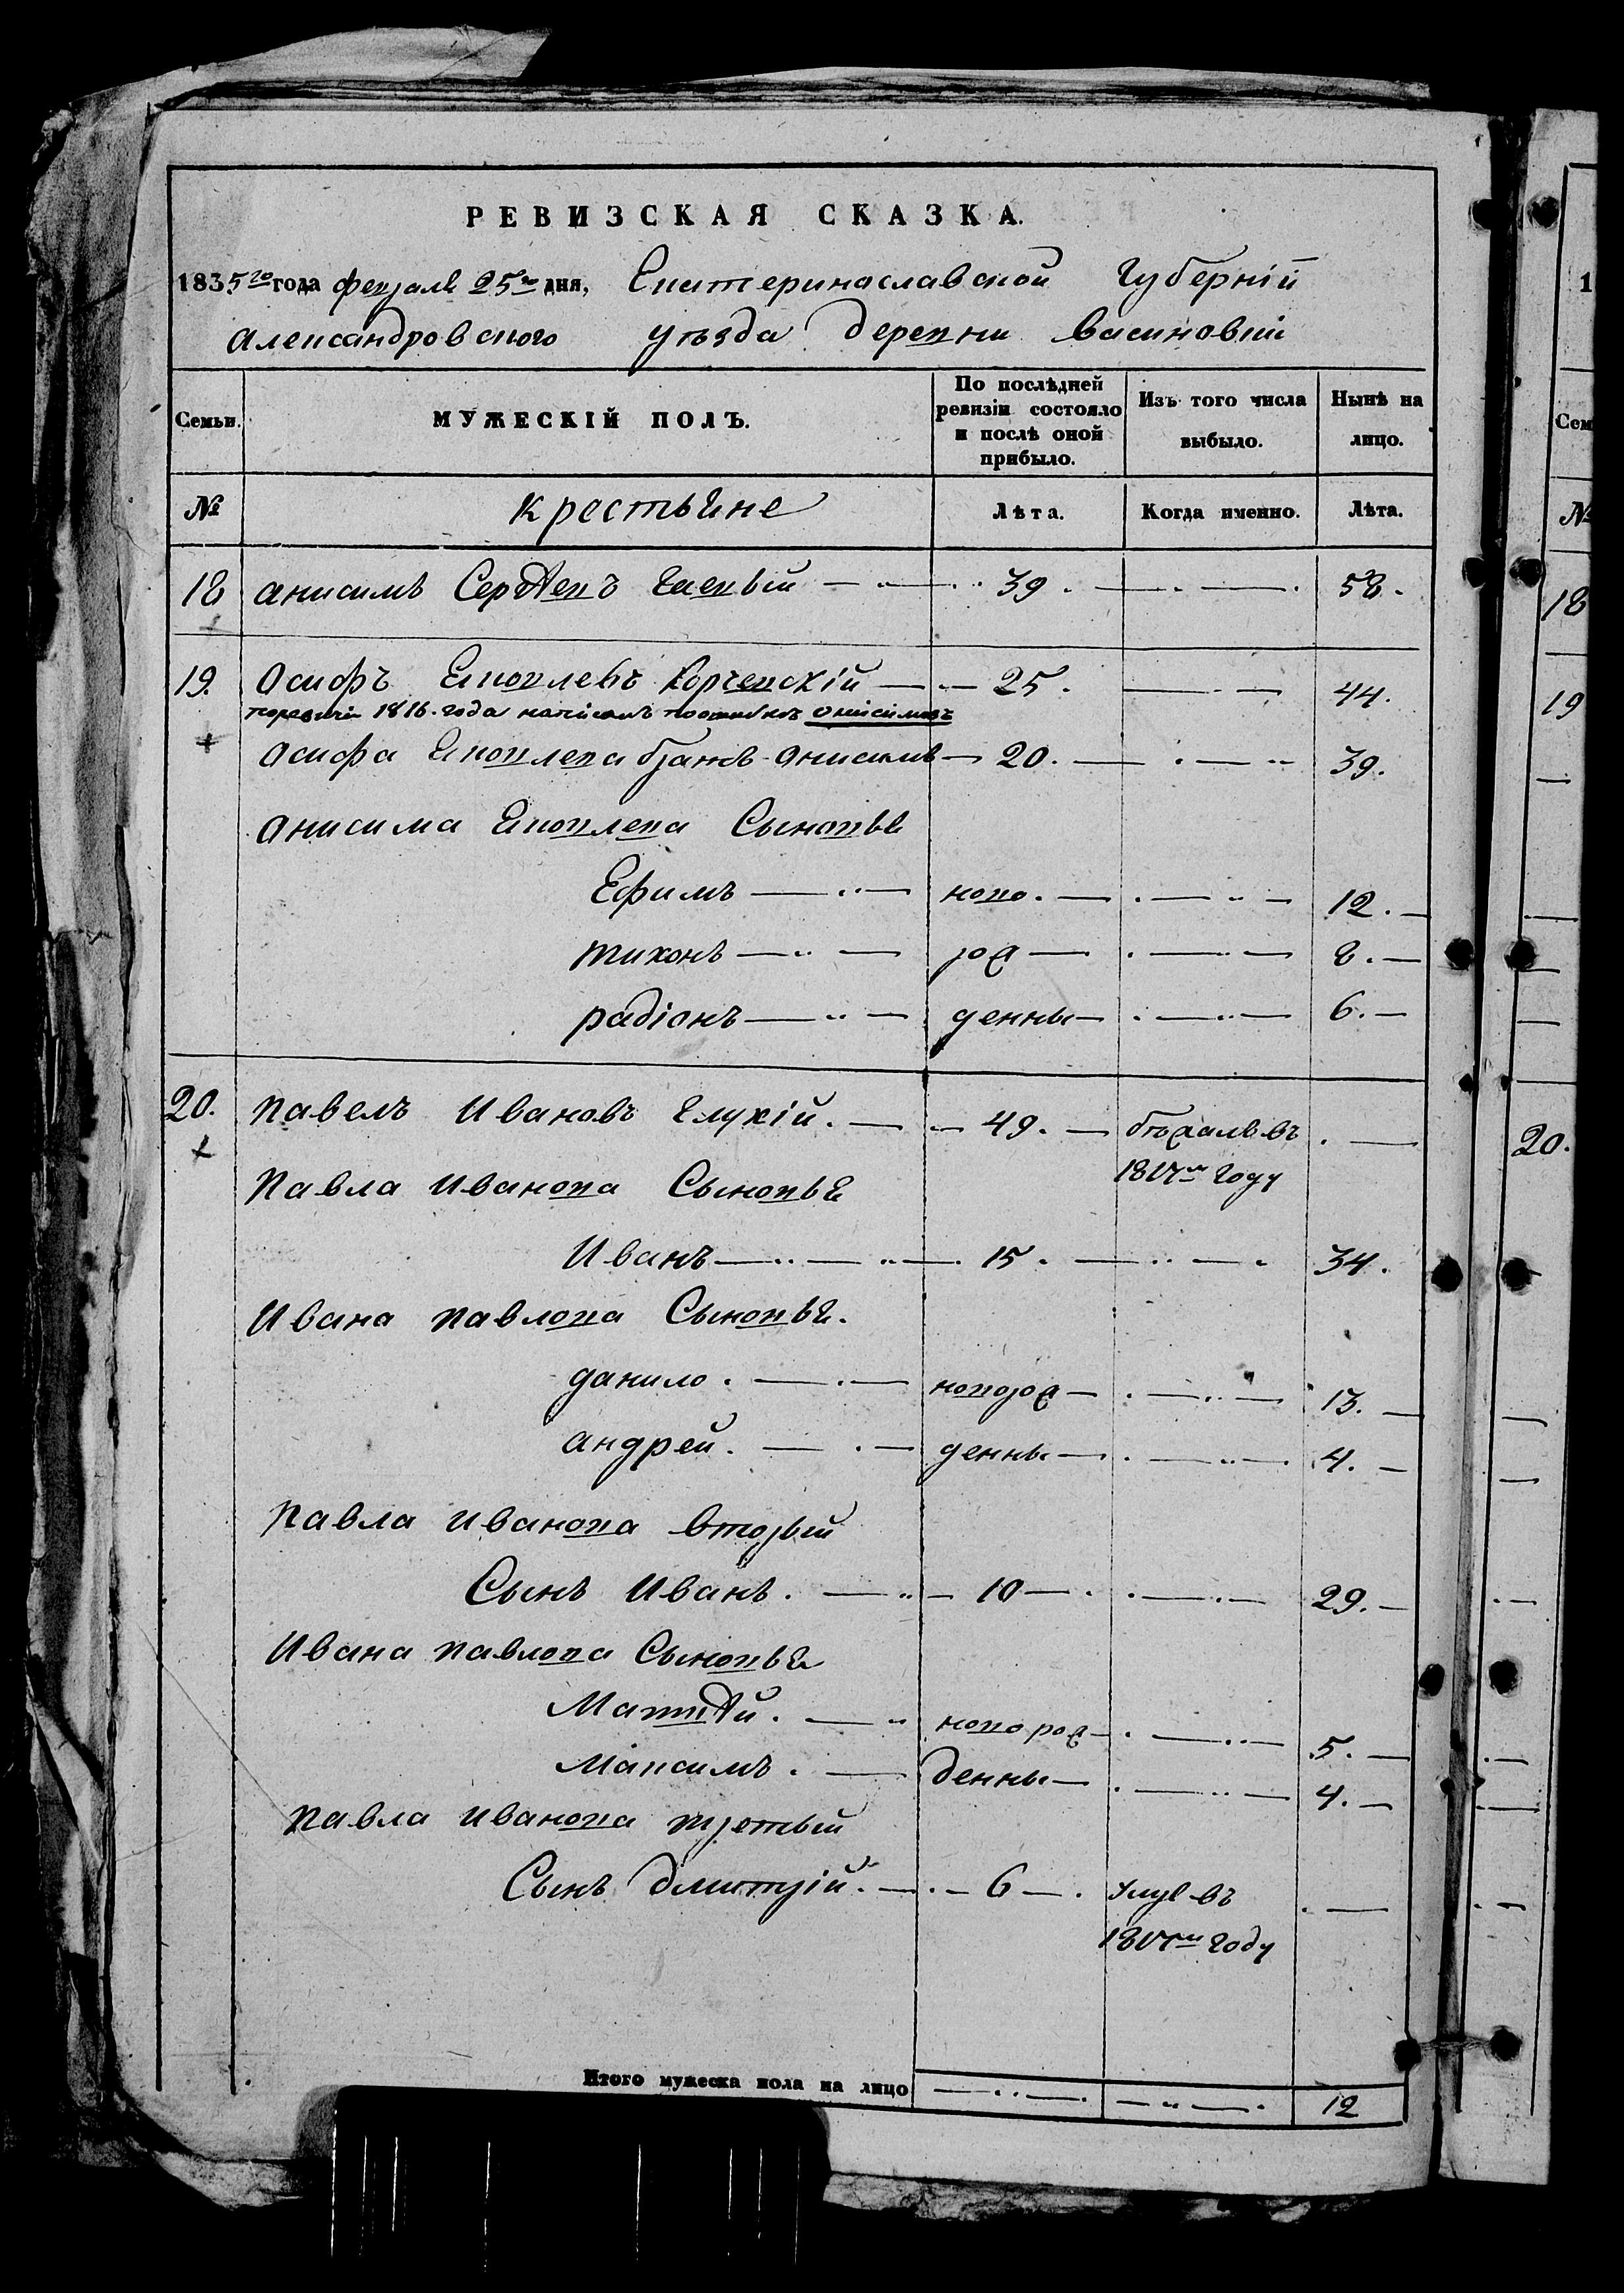 РЕВИЗСКАЯ СКАЗКА.
1835го года февраля 25го дня, Екатеринославской Губерніи
Александровского уѣзда деревни Васиновки
Семьи. МУЖЕСКІЙ ПОЛЪ. По послѣдней ревизіи состояло и послѣ оной прибыло. Изъ того числа выбыло. Нынѣ на лицо.
№ Крестьяне Лѣта. Когда именно. Лѣта.
18 Анисимъ Сергѣевъ 39. 58.
19. Осифъ Яковлевъ Корчевскій 25. 44.
1816. года написанъ Онисимовъ
Осифа Яковлева братъ Анисимъ 20. 39.
Анисима Яковлева Сыновья
Ефимъ ново. 12.
Тихонъ рож 8.
Радіонъ денны 6.
20. Павелъ Ивановъ Глухій. 49. бѣжалъ въ
1817м году
Павла Иванова Сыновья
Иванъ 15. 34.
Ивана Павлова Сыновья.
Данило.новорож 13.
Андрей. денны 4.
Павла Иванова вторый
Сынъ Иванъ. 10 29.
Ивана Павлова Сыновья
Матвѣй. новорож 5.
Максимъ. денны 4.
Павла Иванова третьий
Сынъ Дмитрій. 6. умре въ
1817м году
Итого мужеска пола на лицо 12
1
Сем
№
18
19
20.